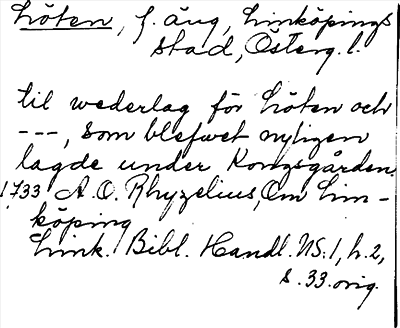 Löten, f. äng, Linköpings
stad, Österg. l.
til wederlag för Löten och
---, som blefwet nyligen
lagde under Kongsgården
1733 A. O. Rhyzelius, Om Lin-
köping
Link. Bibl. Handl. NS. 1, h. 2,
s. 33. orig.